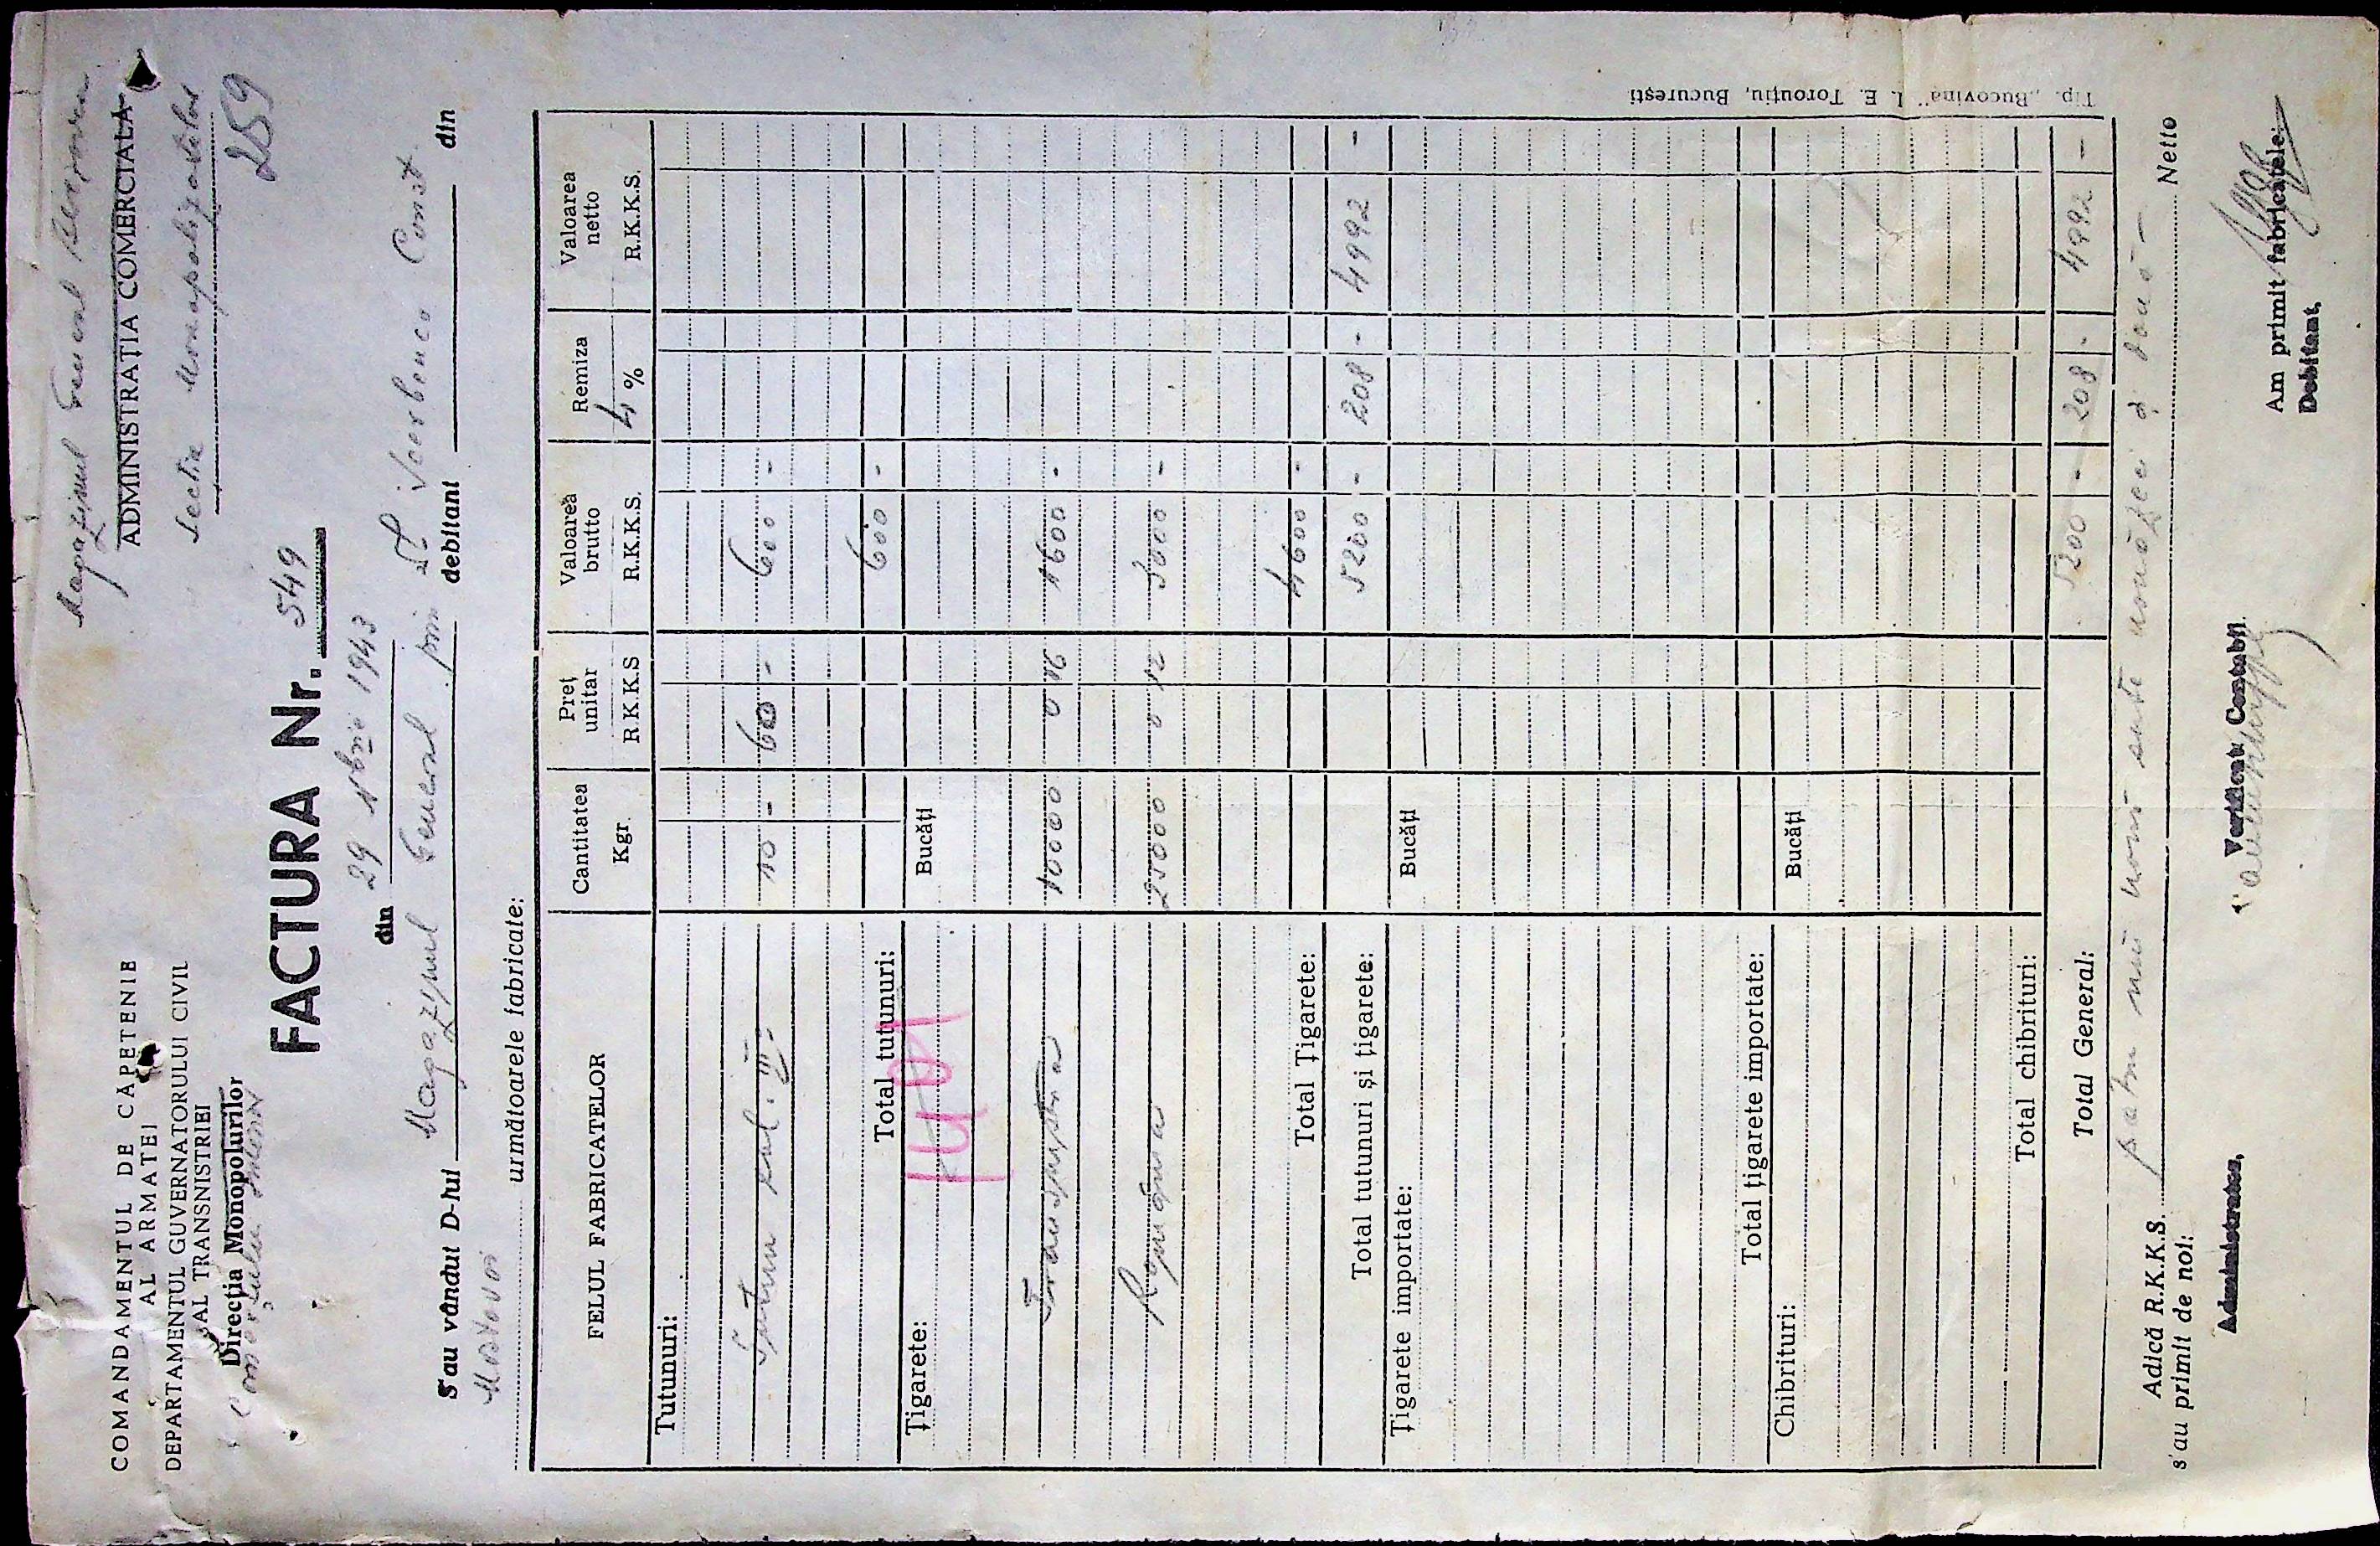 COMANDAMENTUL DE CĂPETENIE
AL ARMATEI
DEPARTAMENTUL GUVERNATORULUI CIVIL
AL TRANSNISTRIEI
Direcția Monopolurilor
Magazinul General
ADMINISTRAȚIA COMERCIALĂ
Secția Monopolizatelor
259
FACTURA Nr. 549
din 29 Xbrie 1943
S'au vândut D-lui Magazinul General prin Dl Const debitant din
Mostovoi
următoarele fabricate:
FELUL FABRICATELOR Cantitatea Kgr. Preț unitar R.K.K.S Valoarea brutto R.K.K.S. Remiza 4 % Valoarea netto R.K.K.S.
Tutunuri:
Tutun cal. III 10 - 60 - 600 -
Total tutunuri: 600 -
Țigarete: Bucăți
Transnistria 10000 0 16 1600 -
Regina 25000 0 12 3000 -
Total Țigarete: 4600 -
Total tutunuri și țigarete: 5200 - 208 - 4992 -
Țigarete importate: Bucăți
Total țigarete importate:
Chibrituri: Bucăți
Total chibrituri:
Total General: 5200 - 208 - 4992 -
Adică R.K.K.S. patru mii nouă sute nouăzeci și două - Netto
s'au primit de noi:
Administrator,
Verificat Contabil
Am primit fabricatele:
Debitant,
Tip. „Bucovina" I. E. Torouțiu, București